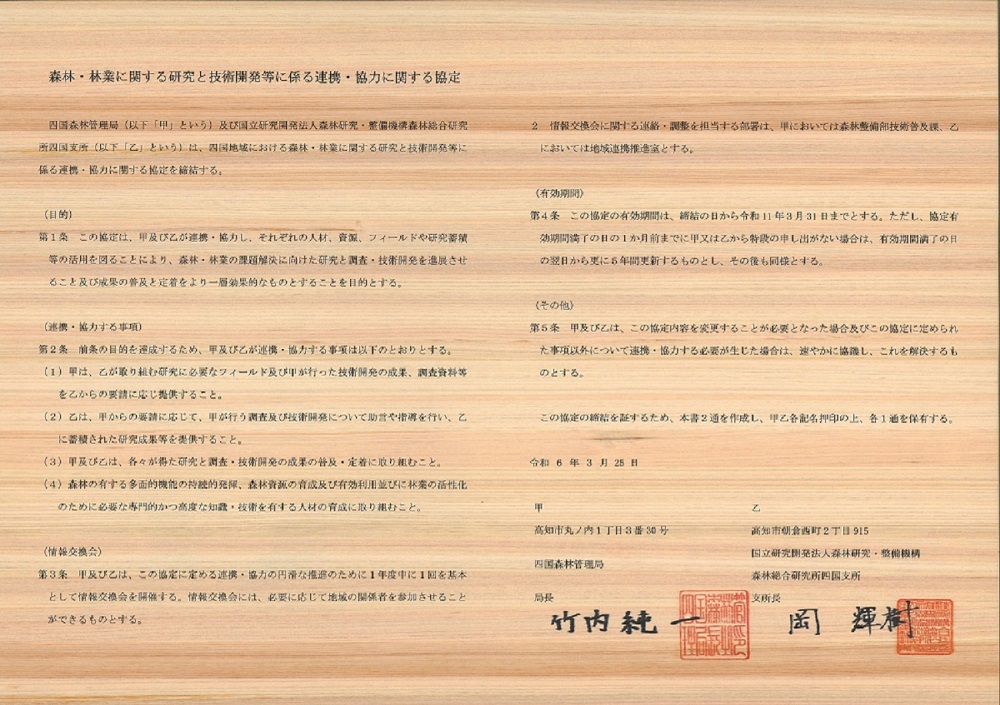 森林・林業に関する研究と技術開発等に係る連携・協力に関する協定
四国森林管理局（以下「甲」という）及び国立研究開発法人森林研究・整備機構森林総合研究
所四国支所（以下「乙」という）は、四国地域における森林・林業に関する研究と技術開発等に
係る連携・協力に関する協定を締結する。
（目的）
第１条　この協定は、甲及び乙が連携・協力し、それぞれの人材、資源、フィールドや研究蓄積
等の活用を図ることにより、森林・林業の課題解決に向けた研究と調査・技術開発を進展させ
ること及び成果の普及と定着をより一層効果的なものとすることを目的とする。
（連携・協力する事項）
第２条　前条の目的を達成するため、甲及び乙が連携・協力する事項は以下のとおりとする。
（１）甲は、乙が取り組む研究に必要なフィールド及び甲が行った技術開発の成果、調査資料等
を乙からの要請に応じ提供すること。
（２）乙は、甲からの要請に応じて、甲が行う調査及び技術開発について助言や指導を行い、乙
に蓄積された研究成果等を提供すること。
（３）甲及び乙は、各々が得た研究と調査・技術開発の成果の普及・定着に取り組むこと。
（４）森林の有する多面的機能の持続的発揮、森林資源の育成及び有効利用並びに林業の活性化
のために必要な専門的かつ高度な知識・技術を有する人材の育成に取り組むこと。
（情報交換会）
第３条　甲及び乙は、この協定に定める連携・協力の円滑な推進のために１年度中に１回を基本
として情報交換会を開催する。情報交換会には、必要に応じて地域の関係者を参加させること
ができるものとする。
２　情報交換会に関する連絡・調整を担当する部署は、甲においては森林整備部技術普及課、乙
においては地域連携推進室とする。
（有効期間）
第４条　この協定の有効期間は、締結の日から令和11年３月31日までとする。ただし、協定有
効期間満了の日の１か月前までに甲又は乙から特段の申し出がない場合は、有効期間満了の日
の翌日から更に５年間更新するものとし、その後も同様とする。
（その他）
第５条　甲及び乙は、この協定内容を変更することが必要となった場合及びこの協定に定められ
た事項以外について連携・協力する必要が生じた場合は、速やかに協議し、これを解決するも
のとする。
この協定の締結を証するため、本書２通を作成し、甲乙各記名押印の上、各１通を保有する。
令和 ６ 年 ３ 月 28 日
甲
高知市丸ノ内１丁目３番30号
四国森林管理局
局長
竹内 純一
乙
高知市朝倉西町２丁目915
国立研究開発法人森林研究・整備機構
森林総合研究所四国支所
支所長
岡 輝樹